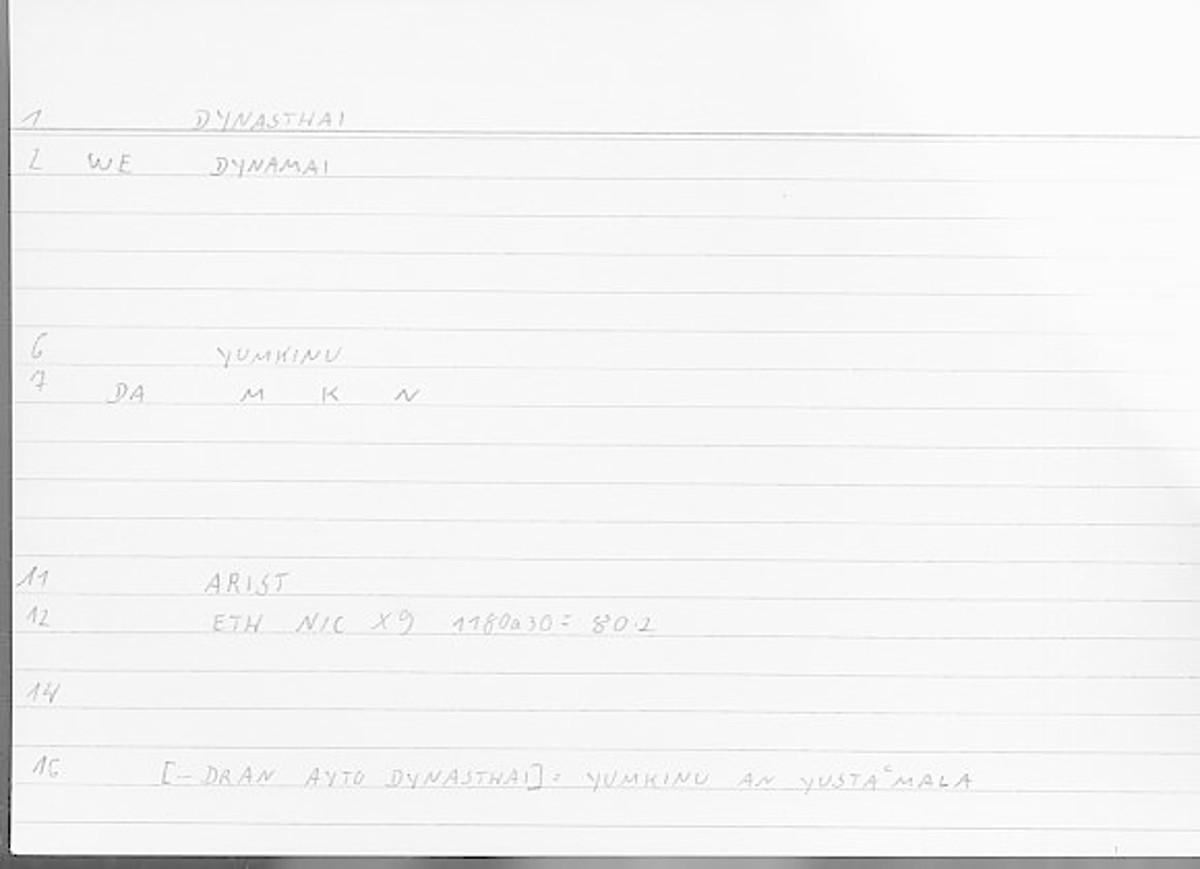 1 DYNASTHAI
2 WE DYNAMAI
6 YUMKINU
7 DA M K N
11 ARIST
12 ETH NIC X9 1180a30= 80.2
14
16 [- DRAN AYTO DYNASTHAI]= YUMKINU AN YUSTAᶜMALA